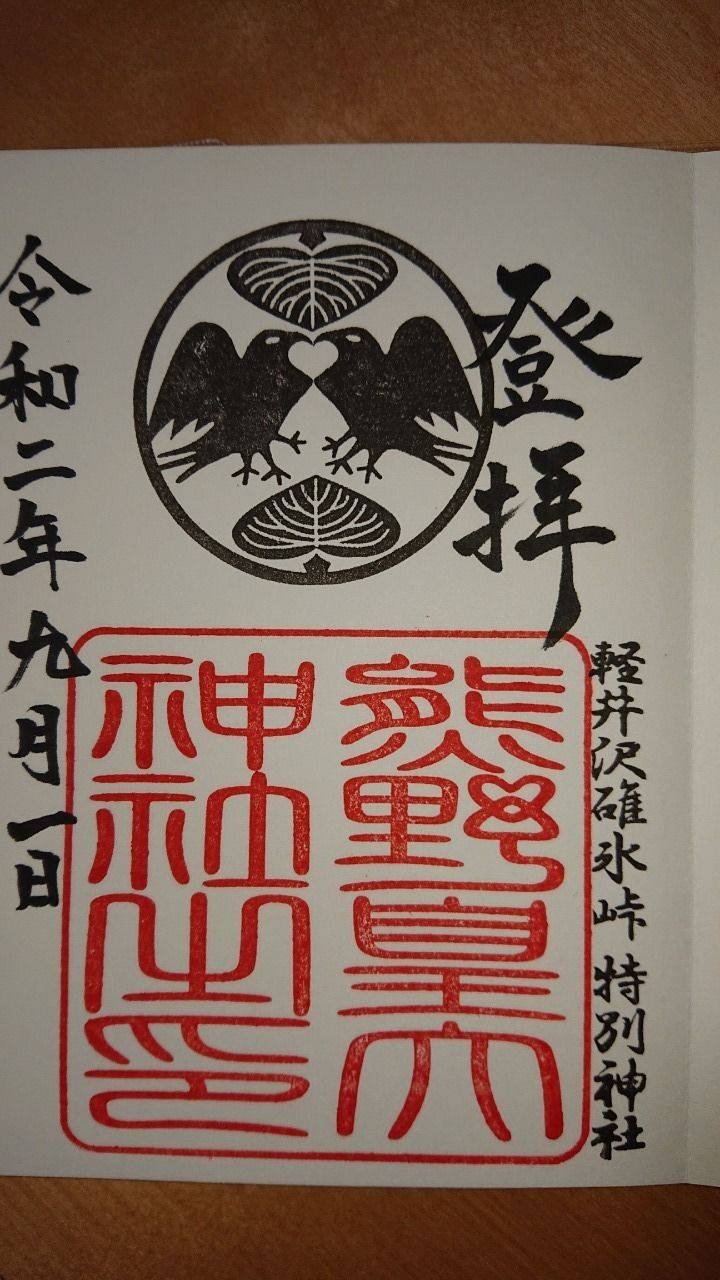 登拝
軽井沢碓氷峠特別神社
熊野皇大
神社之印
令和二年九月一日